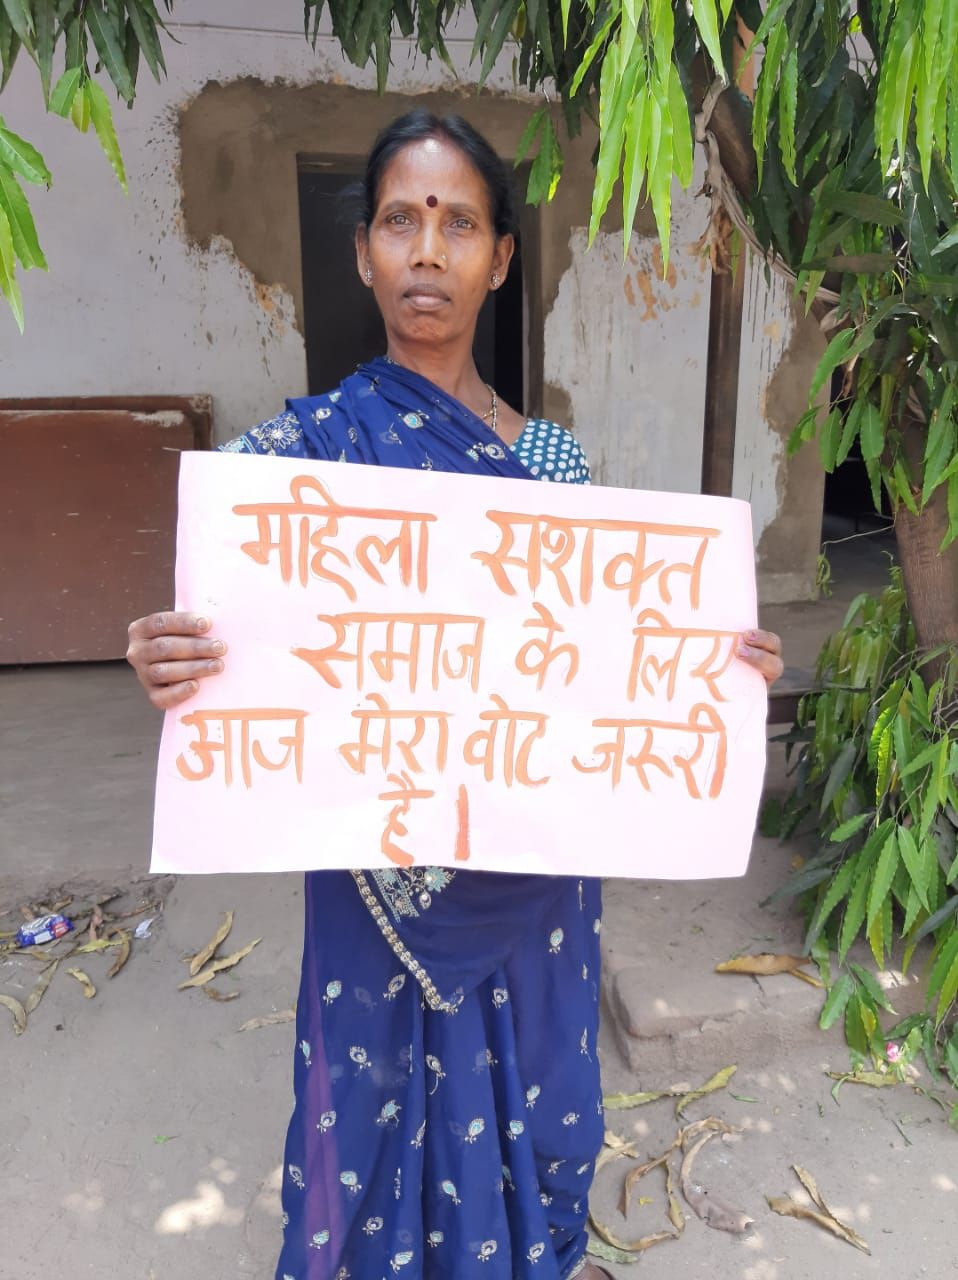 महिला सशक्त
समाज के लिए
आज मेरा वोट जरूरी
है।